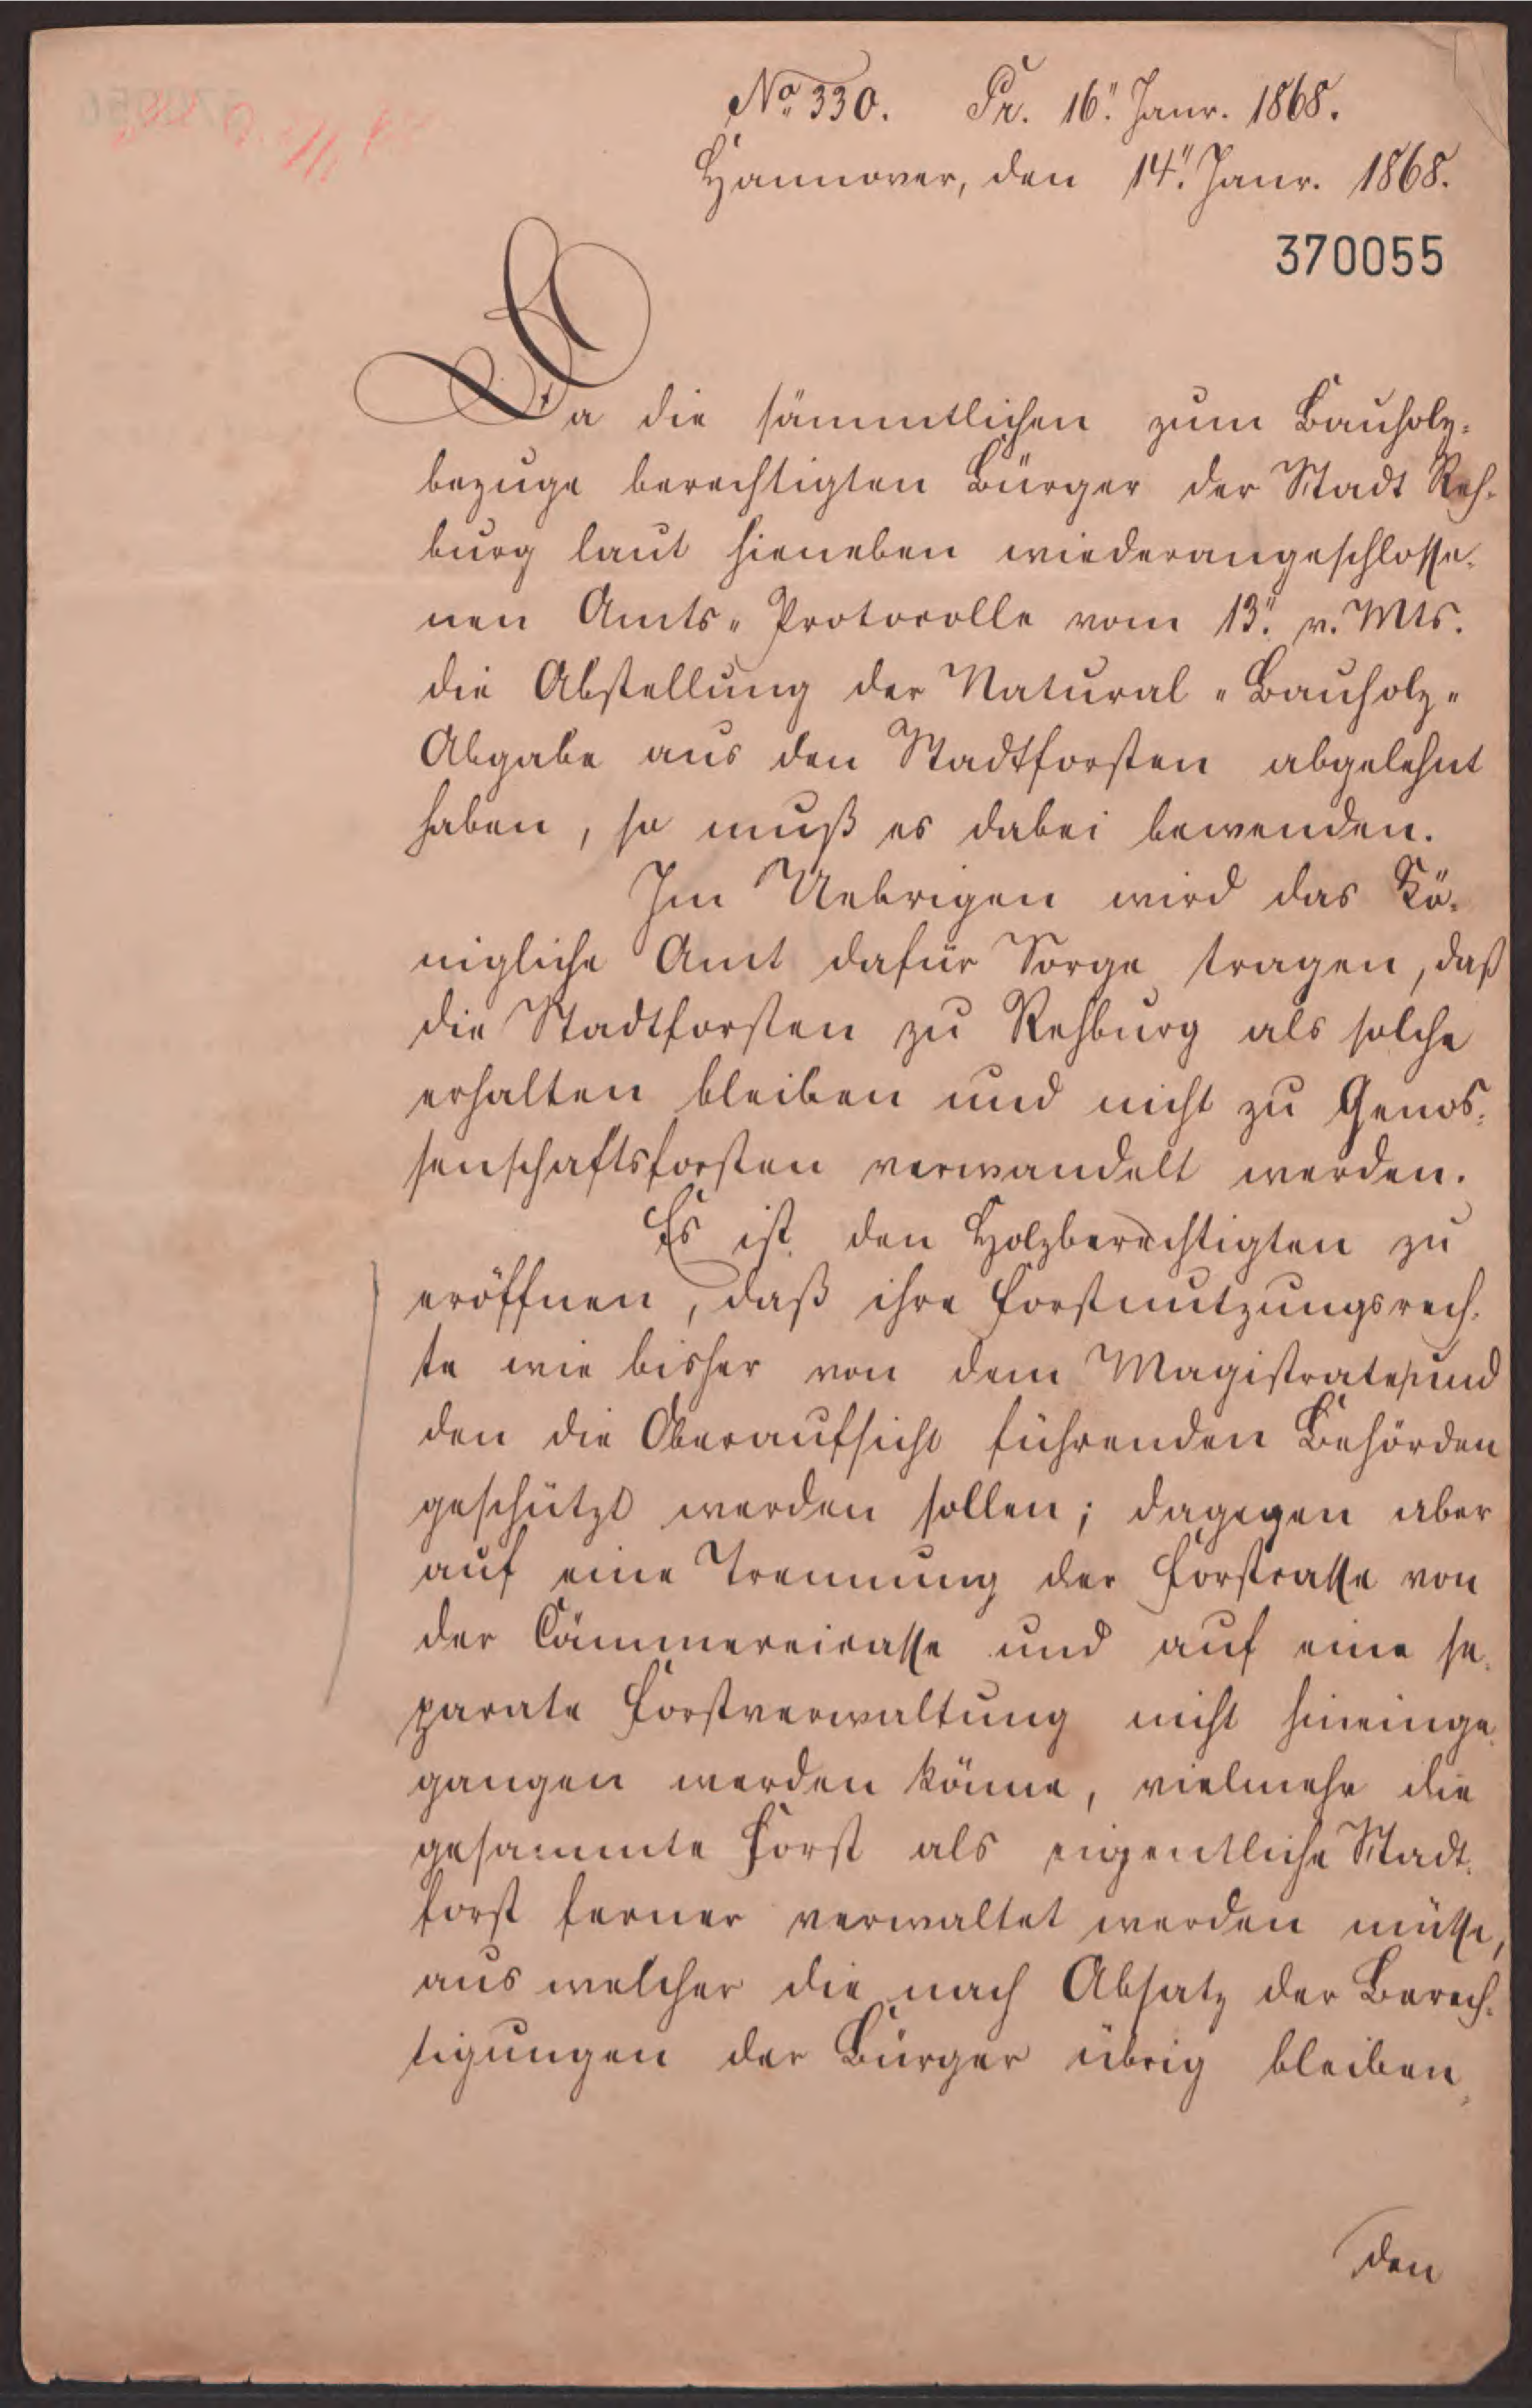 No. 330. Pr. 16". Janr. 1868.
Hannover, den 14". Janr. 1868.
370055
Da die sämmtlichen zum Bauholz-
bezuge berechtigten Bürger der Stadt Reh-
burg laut hieneben wiederangeschlosse-
nen Amts-Protocolle vom 13". v. Mts.
die Abstellung der Natural-Bauholz-
Abgabe aus den Stadtforsten abgelehnt
haben, so muß es dabei bewenden.
Im Uebrigen wird das Kö-
nigliche Amt dafür Sorge tragen, daß
die Stadtforsten zu Rehburg als solche
erhalten bleiben und nicht zu Genos-
senschaftsforsten verwandelt werden.
Es ist den Holzberechtigten zu
eröffnen, daß ihre Forstnutzungsrech-
te wie bisher von dem Magistrate und
den die Oberaufsicht führenden Behörden
geschützt werden sollen; dagegen aber
auf eine Trennung der Forstcasse von
der Cämmereicasse und auf eine se-
parate Forstverwaltung nicht hineinge-
gangen werden könne, vielmehr die
gesammte Forst als eigentliche Stadt-
forst ferner verwaltet werden müsse,
aus welcher die nach Absatz der Berech-
tigungen der Bürger übrig bleiben-
den